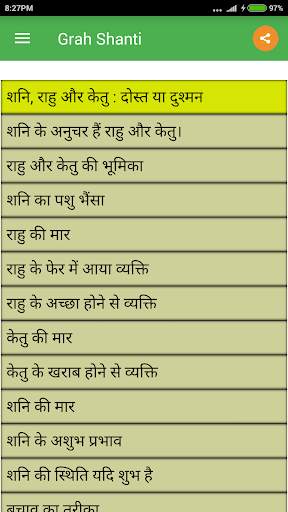 8:27PM
97%
Grah Shanti
शनि, राहु और केतु : दोस्त या दुश्मन
शनि के अनुचर हैं राहु और केतु।
राहु और केतु की भूमिका
शनि का पशु भैंसा
राहु की मार
राहु के फेर में आया व्यक्ति
राहु के अच्छा होने से व्यक्ति
केतु की मार
केतु के खराब होने से व्यक्ति
शनि की मार
शनि के अशुभ प्रभाव
शनि की स्थिति यदि शुभ है
बचाव का तरीका